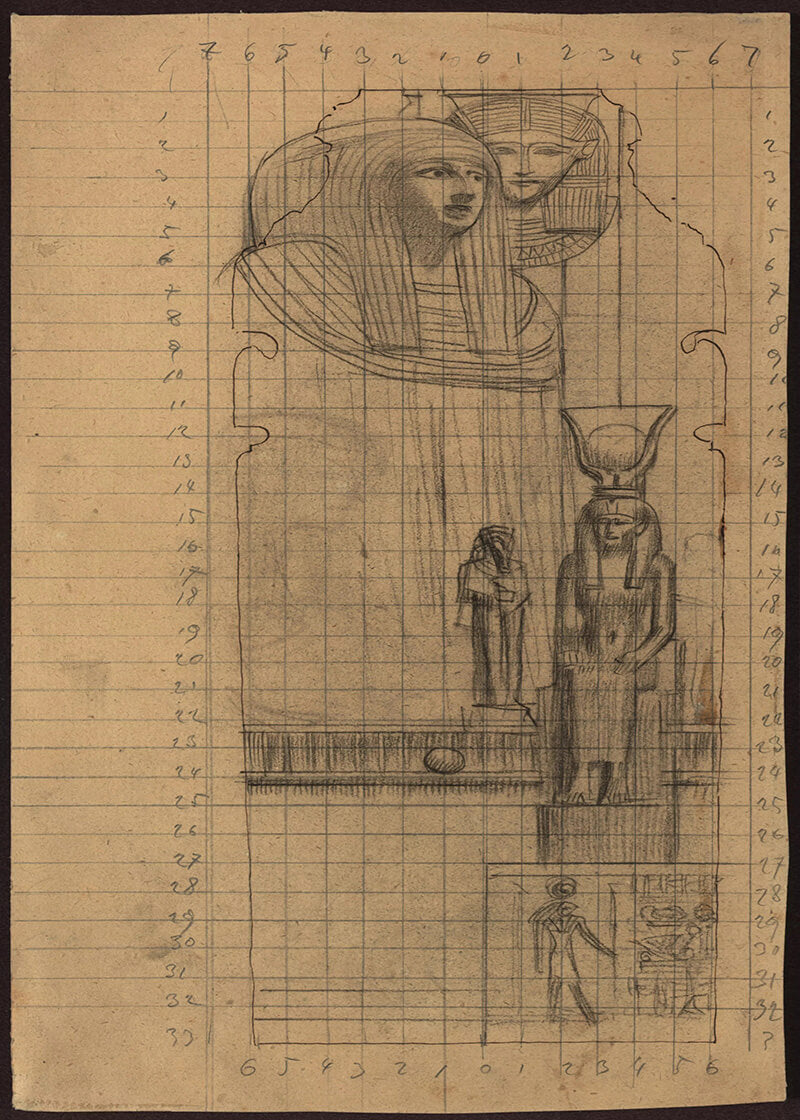 7 6 5 4 3 2 1 0 1 2 3 4 5 6 7
1 1
2 2
3 3
4 4
5 5
6 6
7 7
8 8
9 9
10 10
11 11
12 12
13 13
14 14
15 15
16 16
17 17
18 18
19 19
20 20
21 21
22 22
23 23
24 24
25 25
26 26
27 27
28 28
29 29
30 30
31 31
32 32
33 3
6 5 4 3 2 1 0 1 2 3 4 5 6